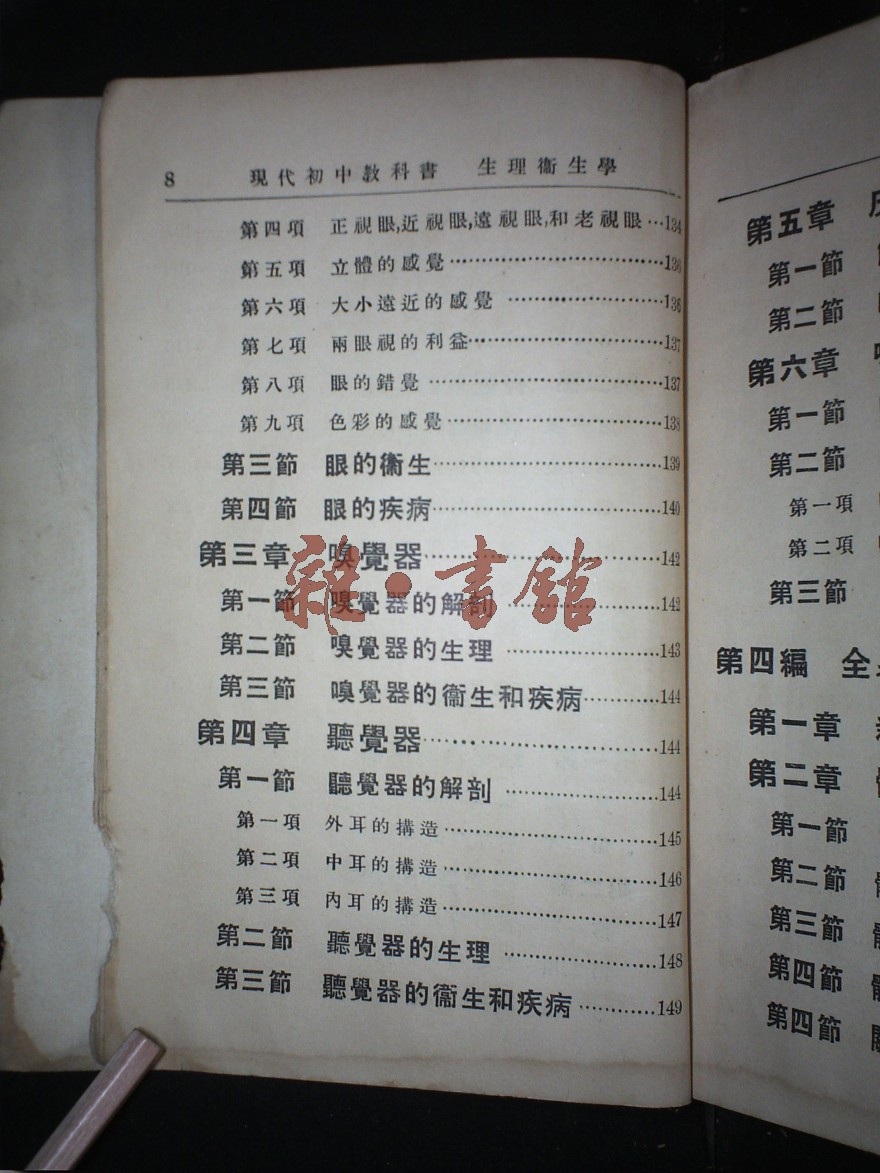 8 現代初中教科書 生理衞生學
第四項 正視眼,近視眼,遠視眼,和老視眼…134
第五項 立體的感覺……136
第六項 大小遠近的感覺……136
第七項 兩眼視的利益……137
第八項 眼的錯覺……137
第九項 色彩的感覺……138
第三節 眼的衞生……139
第四節 眼的疾病……140
第三章 嗅覺器……142
第一節 嗅覺器的解剖……142
第二節 嗅覺器的生理……143
第三節 嗅覺器的衞生和疾病……144
第四章 聽覺器……144
第一節 聽覺器的解剖……144
第一項 外耳的搆造……145
第二項 中耳的搆造……146
第三項 內耳的搆造……147
第二節 聽覺器的生理……148
第三節 聽覺器的衞生和疾病……149
雜·書館
第五章
第一節
第二節
第六章
第一節
第二節
第一項
第二項
第三節
第四編 全
第一章
第二章
第一節
第二節
第三節
第四節
第四節